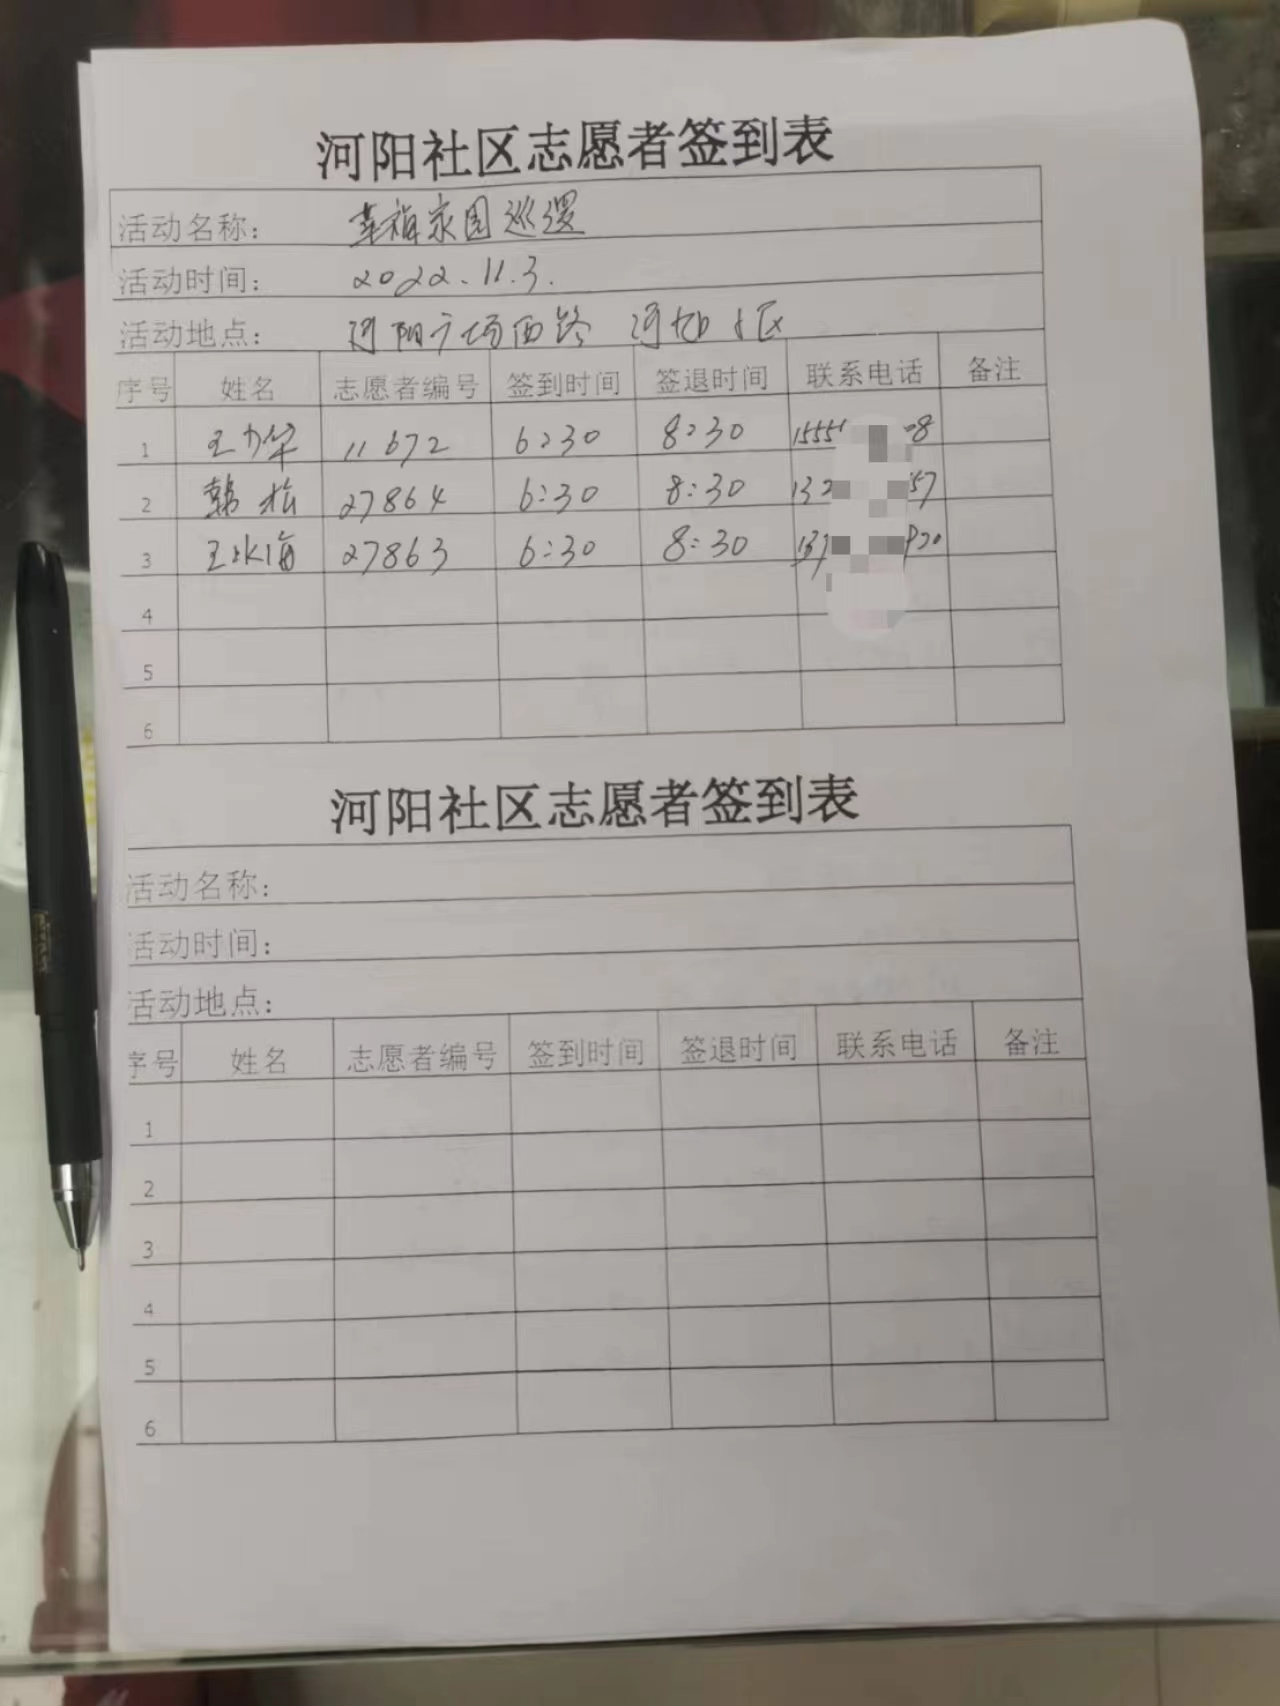 河阳社区志愿者签到表
活动名称： 幸福家园巡逻
活动时间： 2022.11.3.
活动地点： 河阳广场西路 河阳小区
序号 姓名 志愿者编号 签到时间 签退时间 联系电话 备注
1 王 华 11672 6:30 8:30 15551 08
2 韩 松 27864 6:30 8:30 132 57
3 王 海 27863 6:30 8:30 137 20
4
5
6
河阳社区志愿者签到表
活动名称：
活动时间：
活动地点：
序号 姓名 志愿者编号 签到时间 签退时间 联系电话 备注
1
2
3
4
5
6